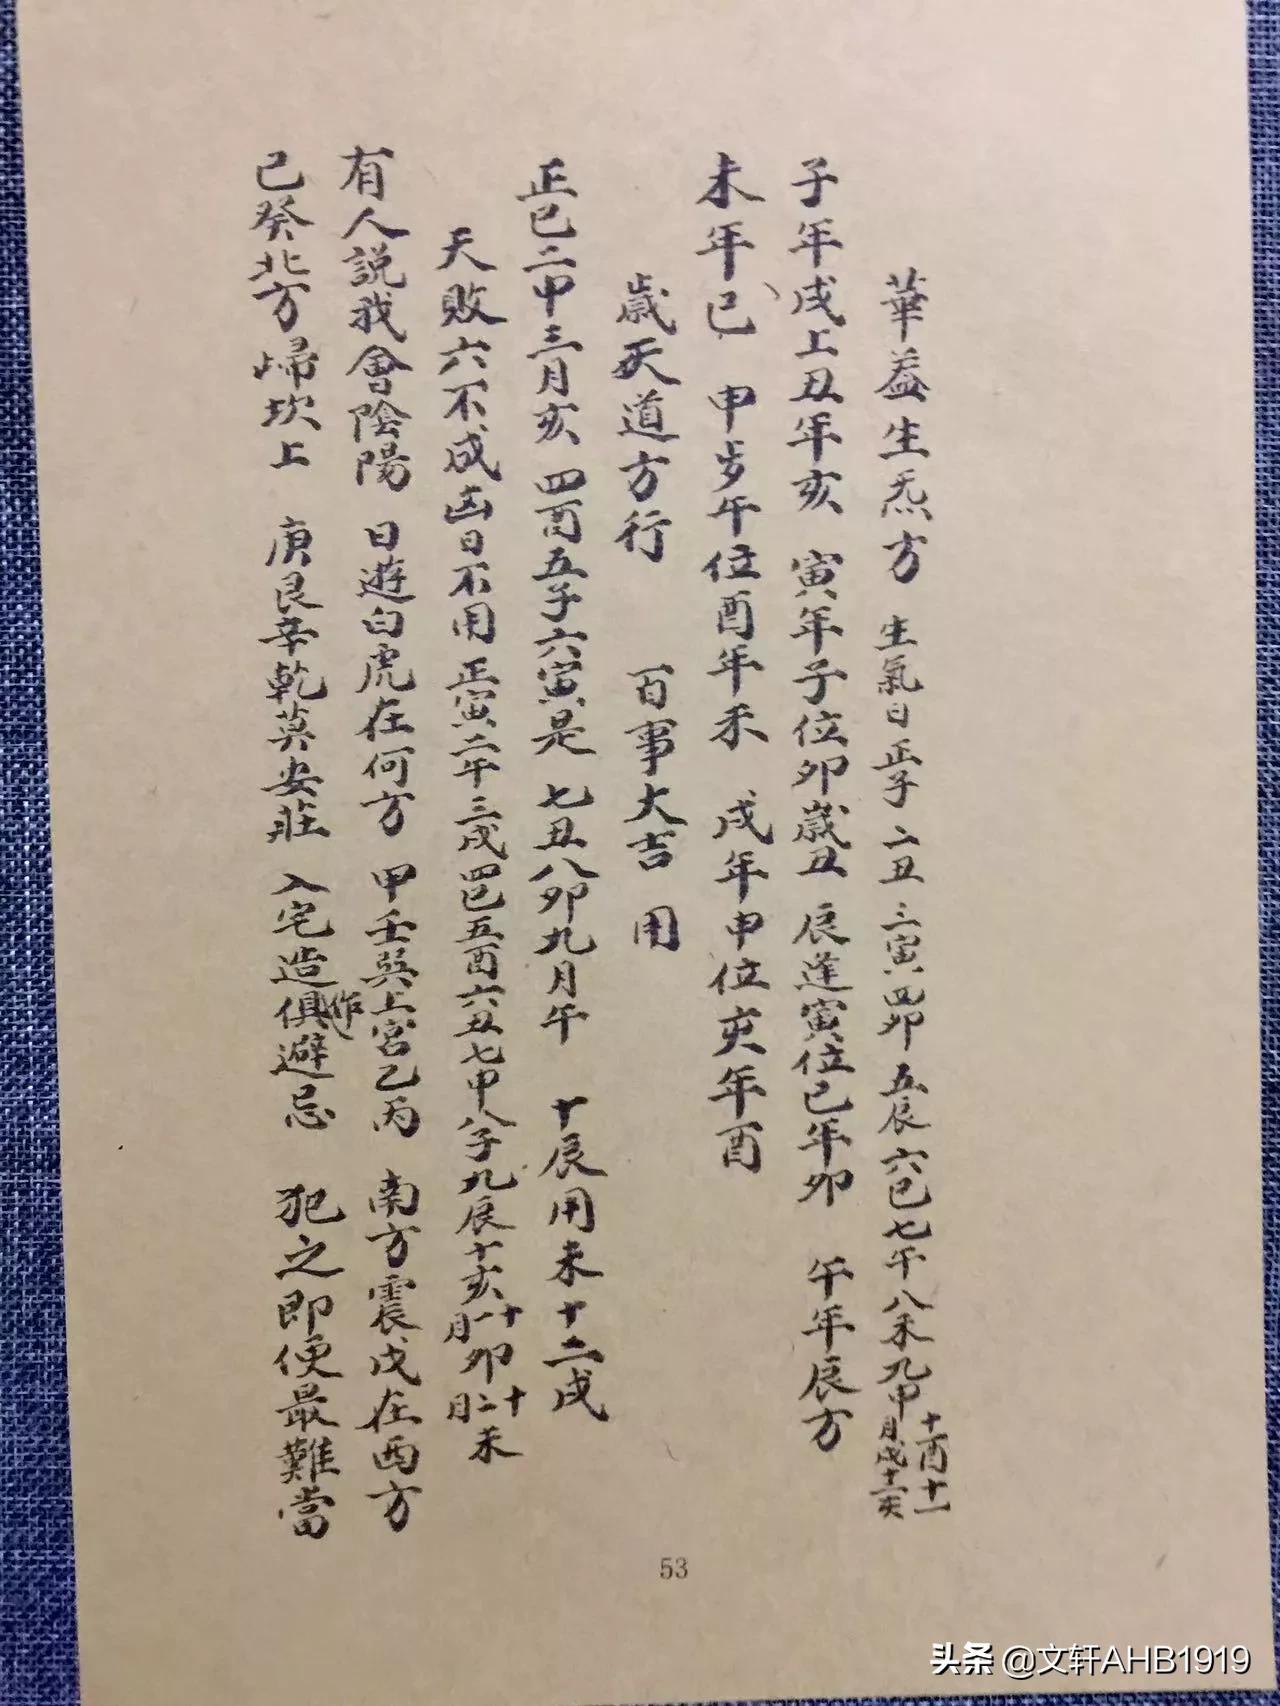 華益生炁方 生氣日正子 二丑 三寅四卯 五辰六巳七午八未九申十酉十一月戌十二亥
子年戌上丑年亥 寅年子位卯歲丑 辰逢寅位巳年卯 午年辰方
未年巳、 申歩午位酉年未 戌年申位亥年酉
歲天道方行 百事大吉 用
正巳二甲三月亥 四酉五子六寅是 七丑八卯九月午 十辰用未十二戌
天敗六不成凶日不用 正寅二午三戌四巳五酉六丑七申八子九辰十亥十一月卯十二月未
有人説我會陰陽 日遊白虎在何方 甲壬巽上宮乙丙 南方震戊在西方
己癸北方歸坎上 庚艮辛乾莫安莊 入宅造作俱避忌 犯之即便最難當
53
头条 @文轩AHB1919